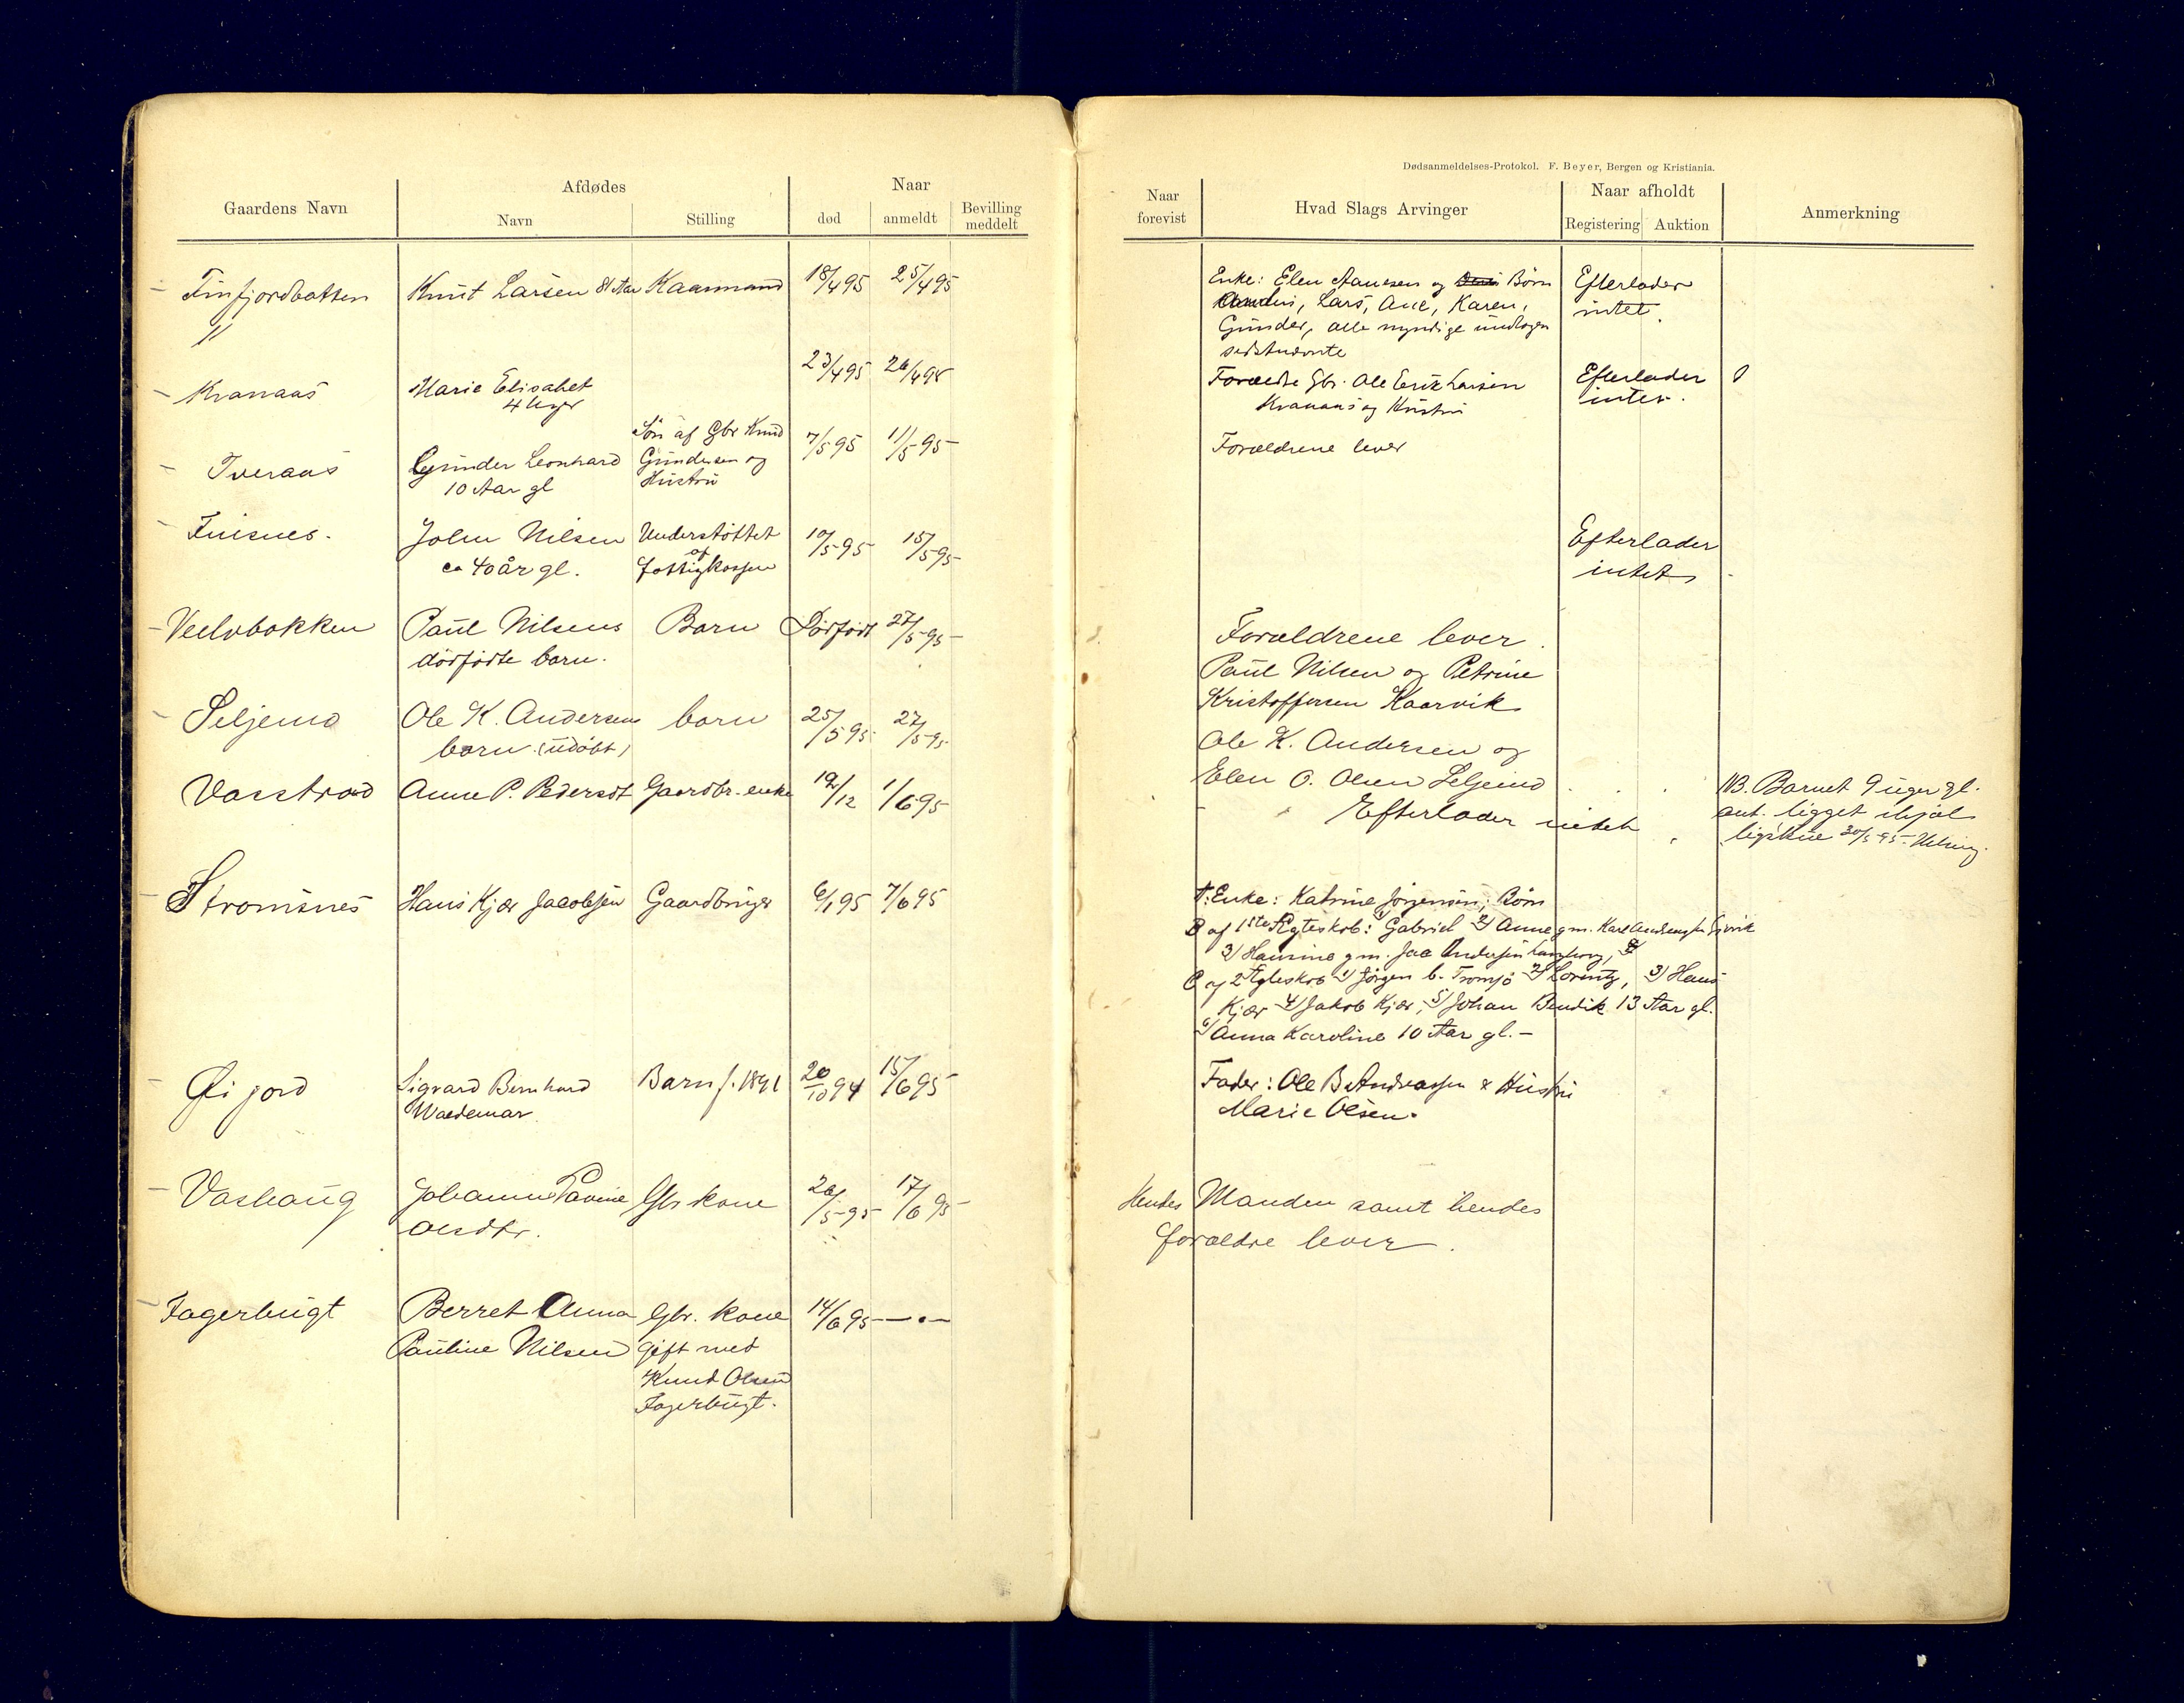 Gaardens Navn
Afdødes
Navn
Stilling
Naar
død
anmeldt
Bevilling
meddelt
Finfjordbotten
Knut Larsen 81 Aar
Kaarmand
18/4 95
25/4 95
Kranaas
Marie Elisabet
4 Uger
23/4 95
26/4 95
Tveraas
Gunder Leonhard
10 Aar gl
Søn af Gbr Knud
Gundersen og
Hustru
7/5 95
11/5 95
Finsnes.
John Nilsen
ca 40 år gl.
Understøttet
af
fattigkassen
10/5 95
15/5 95
Paul Nilsens
dödfödte barn.
Barn
Dödfödt
27/5 95
Seljemo
Ole K. Andersens
barn (udöbt)
barn
25/5 95
27/5 95
Vasstrand
Anne P. Pedersdt
Gaardbr. enke
19/12
1/6 95
Strømsnes
Hans Kjær Jacobsen
Gaardbruger
6/1 95
7/6 95
Øijord
Sigvard Bernhard
Waldemar.
Barn f. 1891
20/10 94
15/6 95
Vashaug
Johanne Pavine
Olsdtr.
Gbr kone
26/5 95
17/6 95
Fagerbugt
Berret Anna
Pauline Nilsen
Gbr. kone
gift med
Knud Olsen
Fagerbugt.
14/6 95
— " —
Dødsanmeldelses-Protokol. F. Beyer, Bergen og Kristiania.
Naar
forevist
Hvad Slags Arvinger
Naar afholdt
Registering
Auktion
Anmerkning
Enke: Elen Aanesen og Børn
Lars, Ane, Karen,
Gunder, alle myndige undtagen
sidstnævnte
Efterlader
intet.
Forældre Gbr. Ole Erik Larsen
Kranaas og Hustru
Efterlader
intet.
Forældrene lever
Efterlader
intet
Forældrene lever.
Paul Nilsen og Petrine
Kristoffersen Kaarvik
Ole K. Andersen og
Elen O. Olsen Seljemo
NB. Barnet 9 uger gl.
ant. ligget ihjel
30/5 95
Efterlader intet
A: Enke: Katrine Jørgensen; Børn
B af 1ste Ægteskab: 1) Gabriel 2) Anne gm. Karl
3) Hansine gm. Jac Andersen
C af 2 Ægteskab 1) Jørgen b. Tromsø 2) Lorentz, 3) Hans
Kjær 4) Jakob Kjær, 5) Johan Bendik 13 Aar gl.
6) Anna Karoline 10 Aar gl. —
Fader: Ole B Andreassen & Hustru
Marie Olsen.
Hendes Manden samt hendes
forældre lever.